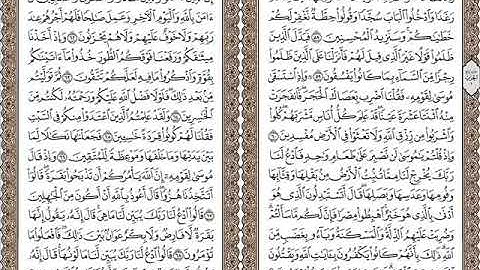 رَغَدًا وَادْخُلُوا الْبَابَ سُجَّدًا وَقُولُوا حِطَّةٌ نَّغْفِرْ لَكُمْ
خَطَايَاكُمْ وَسَنَزِيدُ الْمُحْسِنِينَ ٥٨ فَبَدَّلَ الَّذِينَ
ظَلَمُوا قَوْلًا غَيْرَ الَّذِي قِيلَ لَهُمْ فَأَنزَلْنَا عَلَى الَّذِينَ ظَلَمُوا
رِجْزًا مِّنَ السَّمَاءِ بِمَا كَانُوا يَفْسُقُونَ ٥٩ ۞ وَإِذِ اسْتَسْقَىٰ
مُوسَىٰ لِقَوْمِهِ فَقُلْنَا اضْرِب بِّعَصَاكَ الْحَجَرَ فَانفَجَرَتْ
مِنْهُ اثْنَتَا عَشْرَةَ عَيْنًا قَدْ عَلِمَ كُلُّ أُنَاسٍ مَّشْرَبَهُمْ كُلُوا
وَاشْرَبُوا مِن رِّزْقِ اللَّهِ وَلَا تَعْثَوْا فِي الْأَرْضِ مُفْسِدِينَ ٦٠
وَإِذْ قُلْتُمْ يَامُوسَىٰ لَن نَّصْبِرَ عَلَىٰ طَعَامٍ وَاحِدٍ فَادْعُ لَنَا
رَبَّكَ يُخْرِجْ لَنَا مِمَّا تُنبِتُ الْأَرْضُ مِن بَقْلِهَا وَقِثَّائِهَا
وَفُومِهَا وَعَدَسِهَا وَبَصَلِهَا قَالَ أَتَسْتَبْدِلُونَ الَّذِي هُوَ
أَدْنَىٰ بِالَّذِي هُوَ خَيْرٌ اهْبِطُوا مِصْرًا فَإِنَّ لَكُم مَّا سَأَلْتُمْ
وَضُرِبَتْ عَلَيْهِمُ الذِّلَّةُ وَالْمَسْكَنَةُ وَبَاءُو بِغَضَبٍ مِّنَ
اللَّهِ ذَٰلِكَ بِأَنَّهُمْ كَانُوا يَكْفُرُونَ بِآيَاتِ اللَّهِ وَيَقْتُلُونَ
ءَامَنَ بِاللَّهِ وَالْيَوْمِ الْآخِرِ وَعَمِلَ صَالِحًا فَلَهُمْ أَجْرُهُمْ عِندَ
رَبِّهِمْ وَلَا خَوْفٌ عَلَيْهِمْ وَلَا هُمْ يَحْزَنُونَ ٦٢ وَإِذْ أَخَذْنَا
مِيثَاقَكُمْ وَرَفَعْنَا فَوْقَكُمُ الطُّورَ خُذُوا مَا ءَاتَيْنَاكُم
بِقُوَّةٍ وَاذْكُرُوا مَا فِيهِ لَعَلَّكُمْ تَتَّقُونَ ٦٣ ثُمَّ تَوَلَّيْتُم
مِّن بَعْدِ ذَٰلِكَ فَلَوْلَا فَضْلُ اللَّهِ عَلَيْكُمْ وَرَحْمَتُهُ لَكُنتُم مِّنَ
الْخَاسِرِينَ ٦٤ وَلَقَدْ عَلِمْتُمُ الَّذِينَ اعْتَدَوْا مِنكُمْ فِي السَّبْتِ
فَقُلْنَا لَهُمْ كُونُوا قِرَدَةً خَاسِئِينَ ٦٥ فَجَعَلْنَاهَا نَكَالًا لِّمَا
بَيْنَ يَدَيْهَا وَمَا خَلْفَهَا وَمَوْعِظَةً لِّلْمُتَّقِينَ ٦٦ وَإِذْ قَالَ
مُوسَىٰ لِقَوْمِهِ إِنَّ اللَّهَ يَأْمُرُكُمْ أَن تَذْبَحُوا بَقَرَةً قَالُوا
أَتَتَّخِذُنَا هُزُوًا قَالَ أَعُوذُ بِاللَّهِ أَنْ أَكُونَ مِنَ الْجَاهِلِينَ
٦٧ قَالُوا ادْعُ لَنَا رَبَّكَ يُبَيِّن لَّنَا مَا هِيَ قَالَ إِنَّهُ يَقُولُ إِنَّهَا
بَقَرَةٌ لَّا فَارِضٌ وَلَا بِكْرٌ عَوَانٌ بَيْنَ ذَٰلِكَ فَافْعَلُوا مَا
تُؤْمَرُونَ ٦٨ قَالُوا ادْعُ لَنَا رَبَّكَ يُبَيِّن لَّنَا مَا لَوْنُهَا قَالَ إِنَّهُ